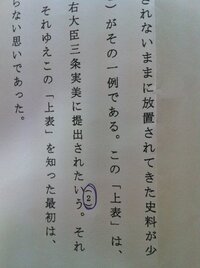 されないままに放置されてきた史料が少
）がその一例である。この「上表」は、
右大臣三条実美に提出されたいう。それ
2
それゆえこの「上表」を知った最初は、
らない思いであった。